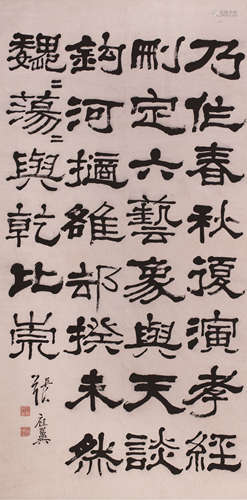 乃作春秋復演孝經
刪定六藝象與天談
鈎河擿雒却揆未然
魏〻蕩〻與乾比崇
張祖翼